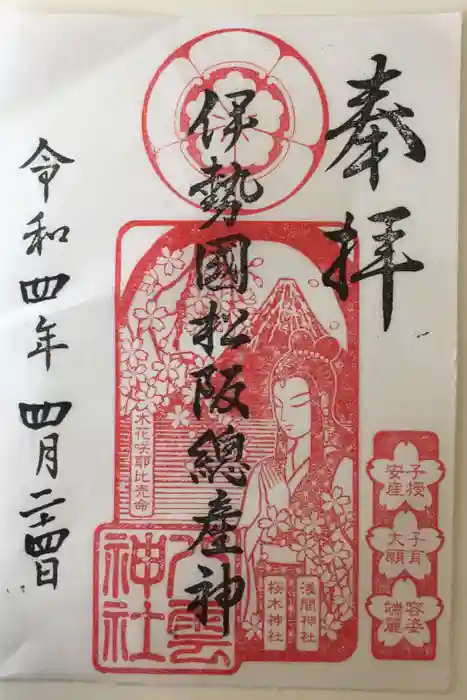 奉拝
伊勢國松阪總産神
令和四年四月二十四日
木花咲耶比売命
浅間神社
桜木神社
八雲神社
子授
安産
子育
大願
容姿
端麗